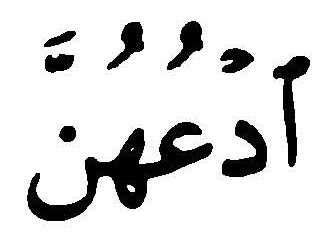 ٱدْعُهُنَّ